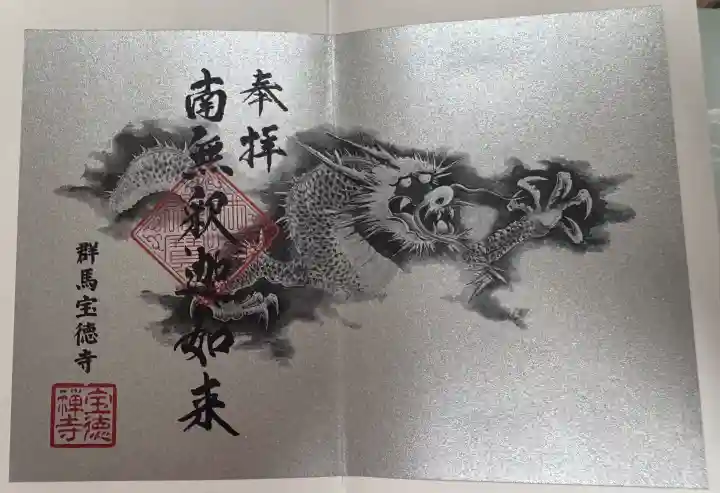 奉拝
南無釈迦如来
群馬宝徳寺
宝徳
禅寺